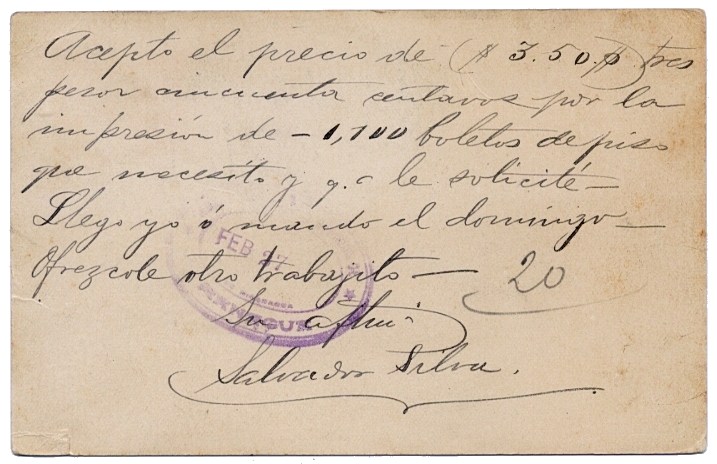 Acepto el precio de ($ 3.50.$) tres
pesos cincuenta centavos por la
impresión de - 1,100 boletos de piso
que necesito y q.e le solicité-
Llego yo ó mando el domingo-
Ofrezcole otro trabajito- 20
FEB 27
Su afmo
Salvador Silva.